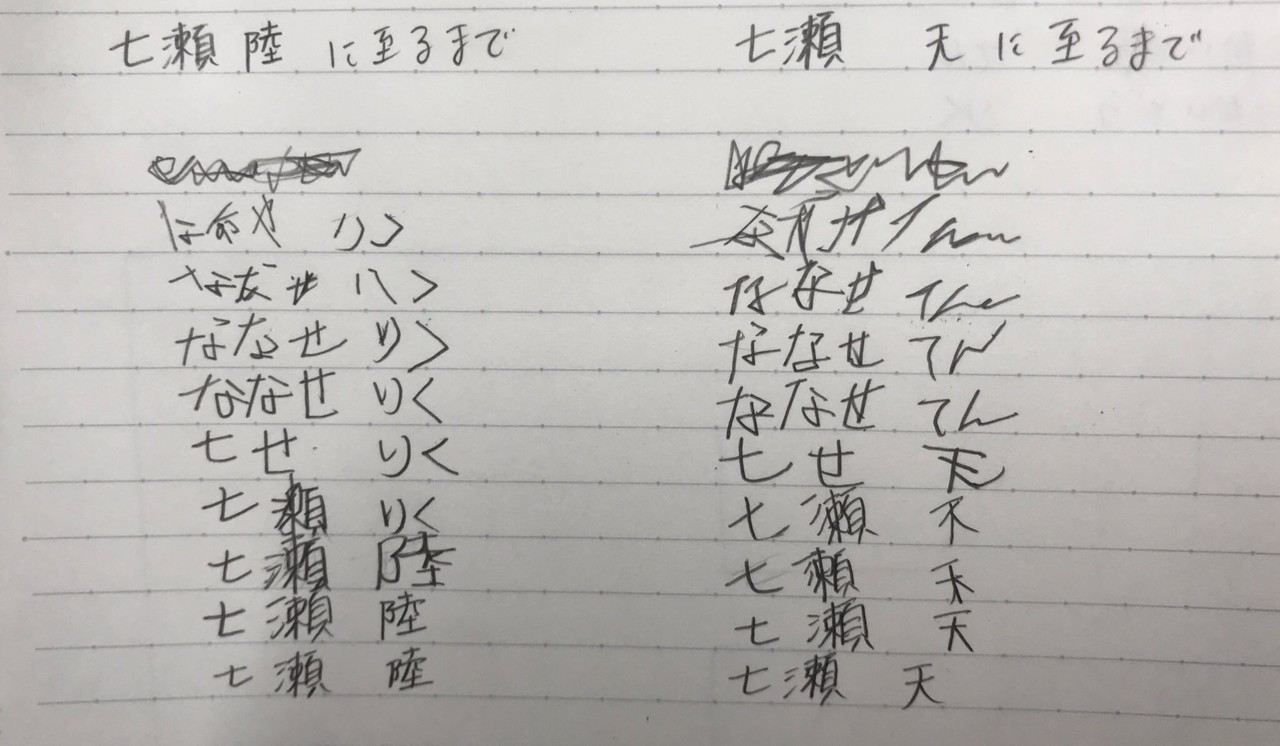 七瀬 陸 に至るまで
七瀬 天 に至るまで
りく
ななせ りく
ななせ りく
ななせ りく
七せ りく
七瀬 りく
七瀬 陸
七瀬 陸
七瀬 陸
ななせ てん
ななせ てん
ななせ てん
七せ 天
七瀬
七瀬 天
七瀬 天
七瀬 天